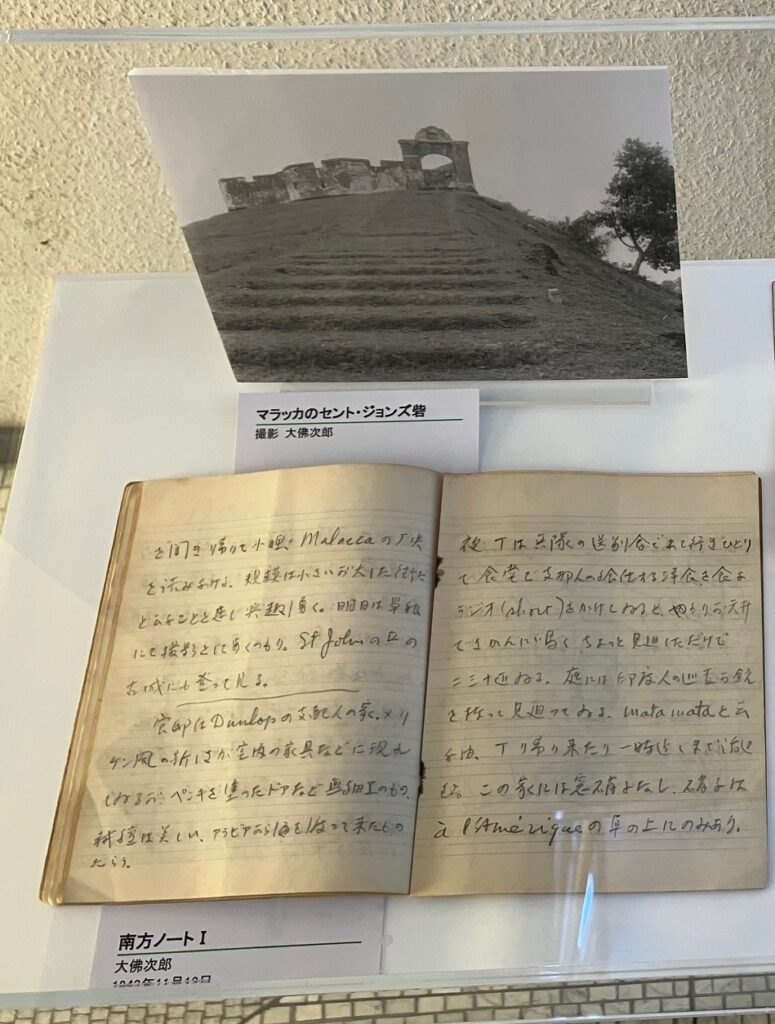 マラッカのセント・ジョンズ砦
撮影 大佛次郎
を聞き帰りて小憩・Malaccaの
を読みあげる。規模は小さいが
と云ふことを感じ興趣湧く。明日は単独
にて撮影とにあくつもり。St Johnの丘の
古城にも登って見る。
官邸はDunlopの支配人の家、メリ
ケン風の新しさが室内の家具などに現れ
てゐるが、ペンキを塗ったドアなど
絨毯は美しい、アラビアから海を渡って来たもの
だらう。
後Tは兵隊の送別会で出て行きひとり
て食堂で支那人の給仕する洋食を食ふ
ラジオ(short)をかけてゐると、やもりが天井
でさかんに鳴く ちょっと見廻しただけで
二三十廻ゐる。庭には印度人の巡査が銃
を持って見廻ってゐる。matamataと云
ふ由、T帰り来たり一時近くまで
この家には窓硝子なし、硝子は
à l'Amériqueの卓の上にのみあり。
南方ノートⅠ
大佛次郎